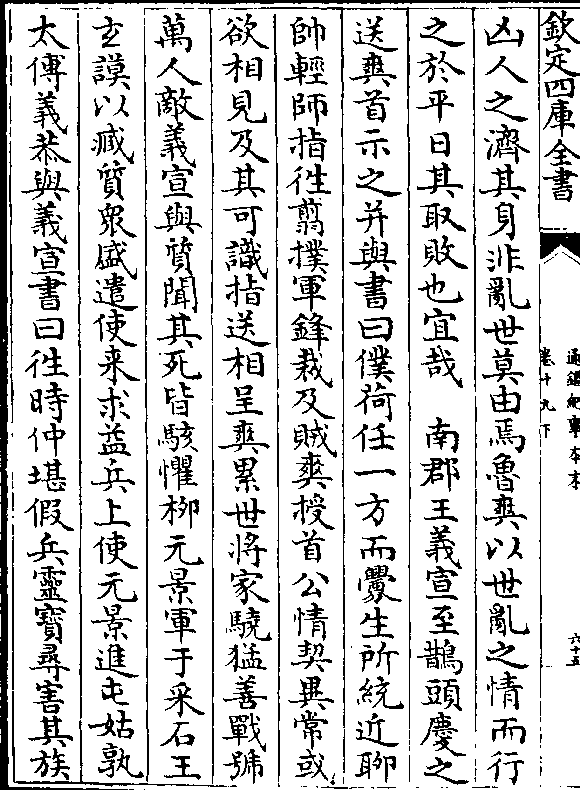 欽定四庫全書
通鑑紀事本末
卷十九下
六十五
凶人之濟其身非亂世莫由焉魯爽以世亂之情而行
之於平日其取敗也宜哉　南郡王義宣至鵲頭慶之
送爽首示之并與書曰僕荷任一方而釁生所統近聊
帥輕師指往翦撲軍鋒裁及賊爽授首公情契異常或
欲相見及其可識指送相呈爽累世將家驍猛善戰號
萬人敵義宣與質聞其死皆駭懼柳元景軍于采石王
玄謨以臧質衆盛遣使来求益兵上使元景進屯姑孰
太傅義恭與義宣書曰往時仲堪假兵靈寶尋害其族